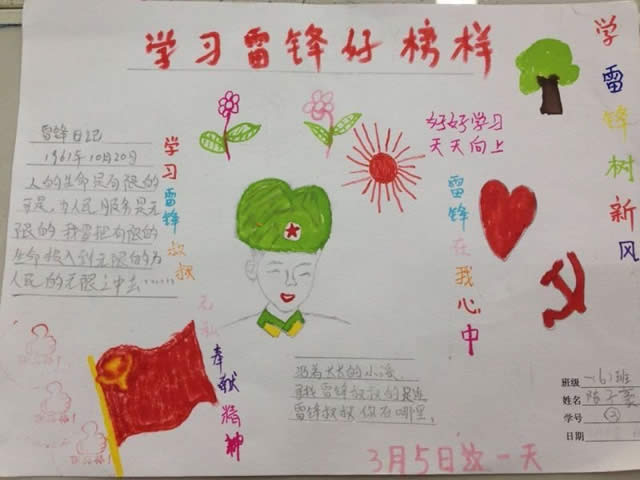 学习雷锋好榜样
学雷锋树新风
雷锋日记
1961年10月20日
人的生命是有限的
可是，为人民服务是无
限的 我要把有限的
生命投入到无限的为
人民的无限之中去……
学习雷锋叔叔
无私
奉献精神
好好学习
天天向上
雷锋在我心中
沿着长长的小溪，
寻找雷锋叔叔的足迹
雷锋叔叔你在哪里，
班级 一(6)班
姓名
学号 ②
日期
3月5日这一天